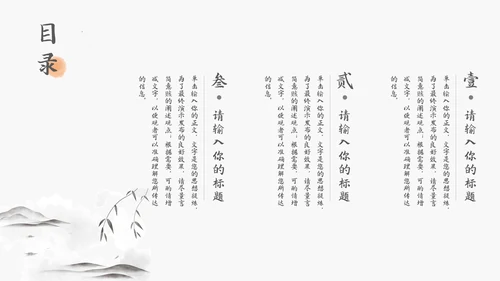 目录
壹·请输入你的标题
单击输入你的正文，文字是您的思想提炼，
为了最终演示发布的良好效果，请尽量言
简意赅的阐述观点，根据需要，可酌情增
减文字，以便观者可以准确理解您所传达
的信息。
贰·请输入你的标题
单击输入你的正文，文字是您的思想提炼，
为了最终演示发布的良好效果，请尽量言
简意赅的阐述观点，根据需要，可酌情增
减文字，以便观者可以准确理解您所传达
的信息。
叁·请输入你的标题
单击输入你的正文，文字是您的思想提炼，
为了最终演示发布的良好效果，请尽量言
简意赅的阐述观点，根据需要，可酌情增
减文字，以便观者可以准确理解您所传达
的信息。